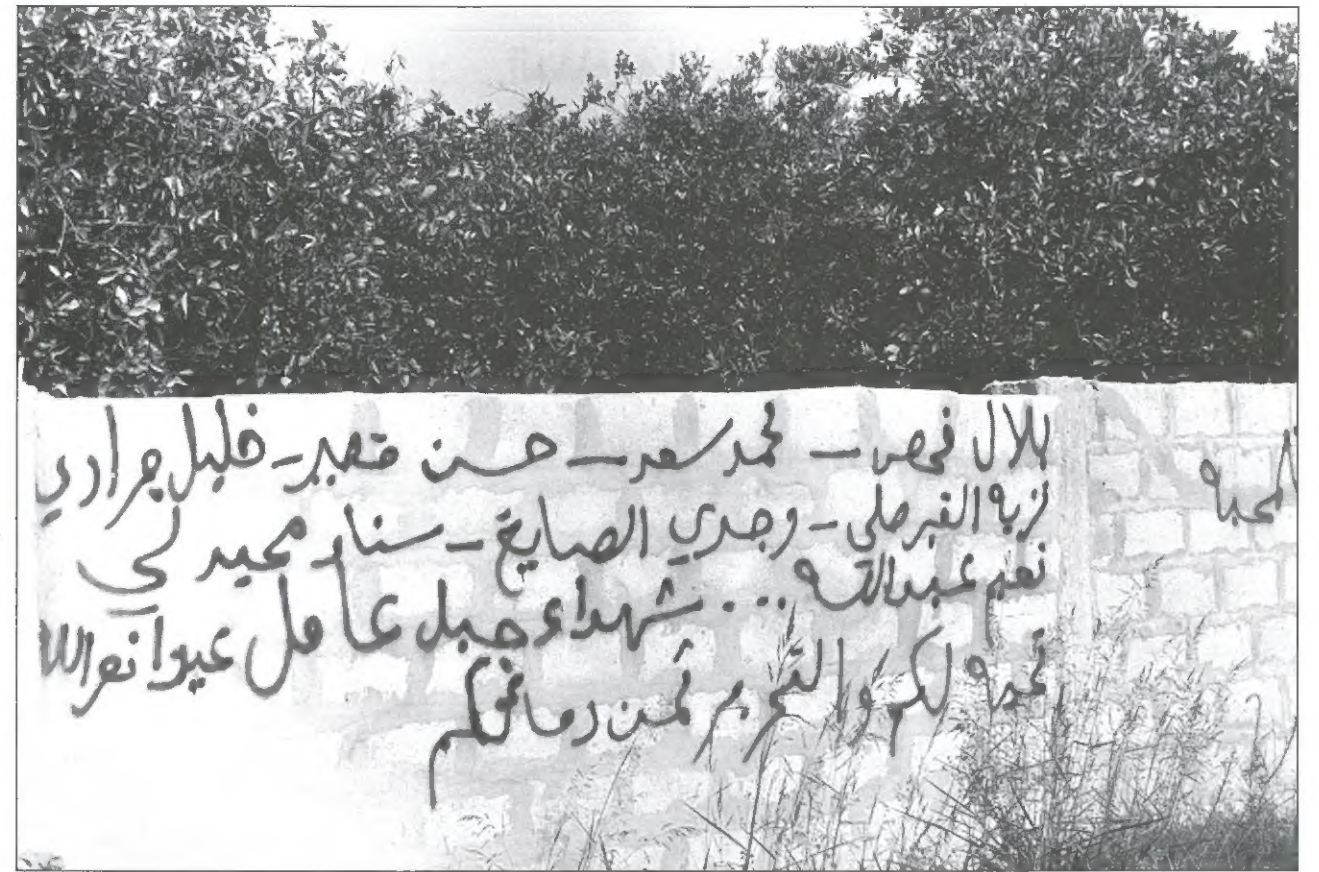 بلال فحص - محمد سعد - حسن قصير - خليل جرادي
نزيه القبرصلي - وجدي الصايغ - سناء محيدلي
نعيم عبدالله ... شهداء جبل عامل عبروا نصر الله
تحية لكم والتحرير ثمن دمائكم
المحبه